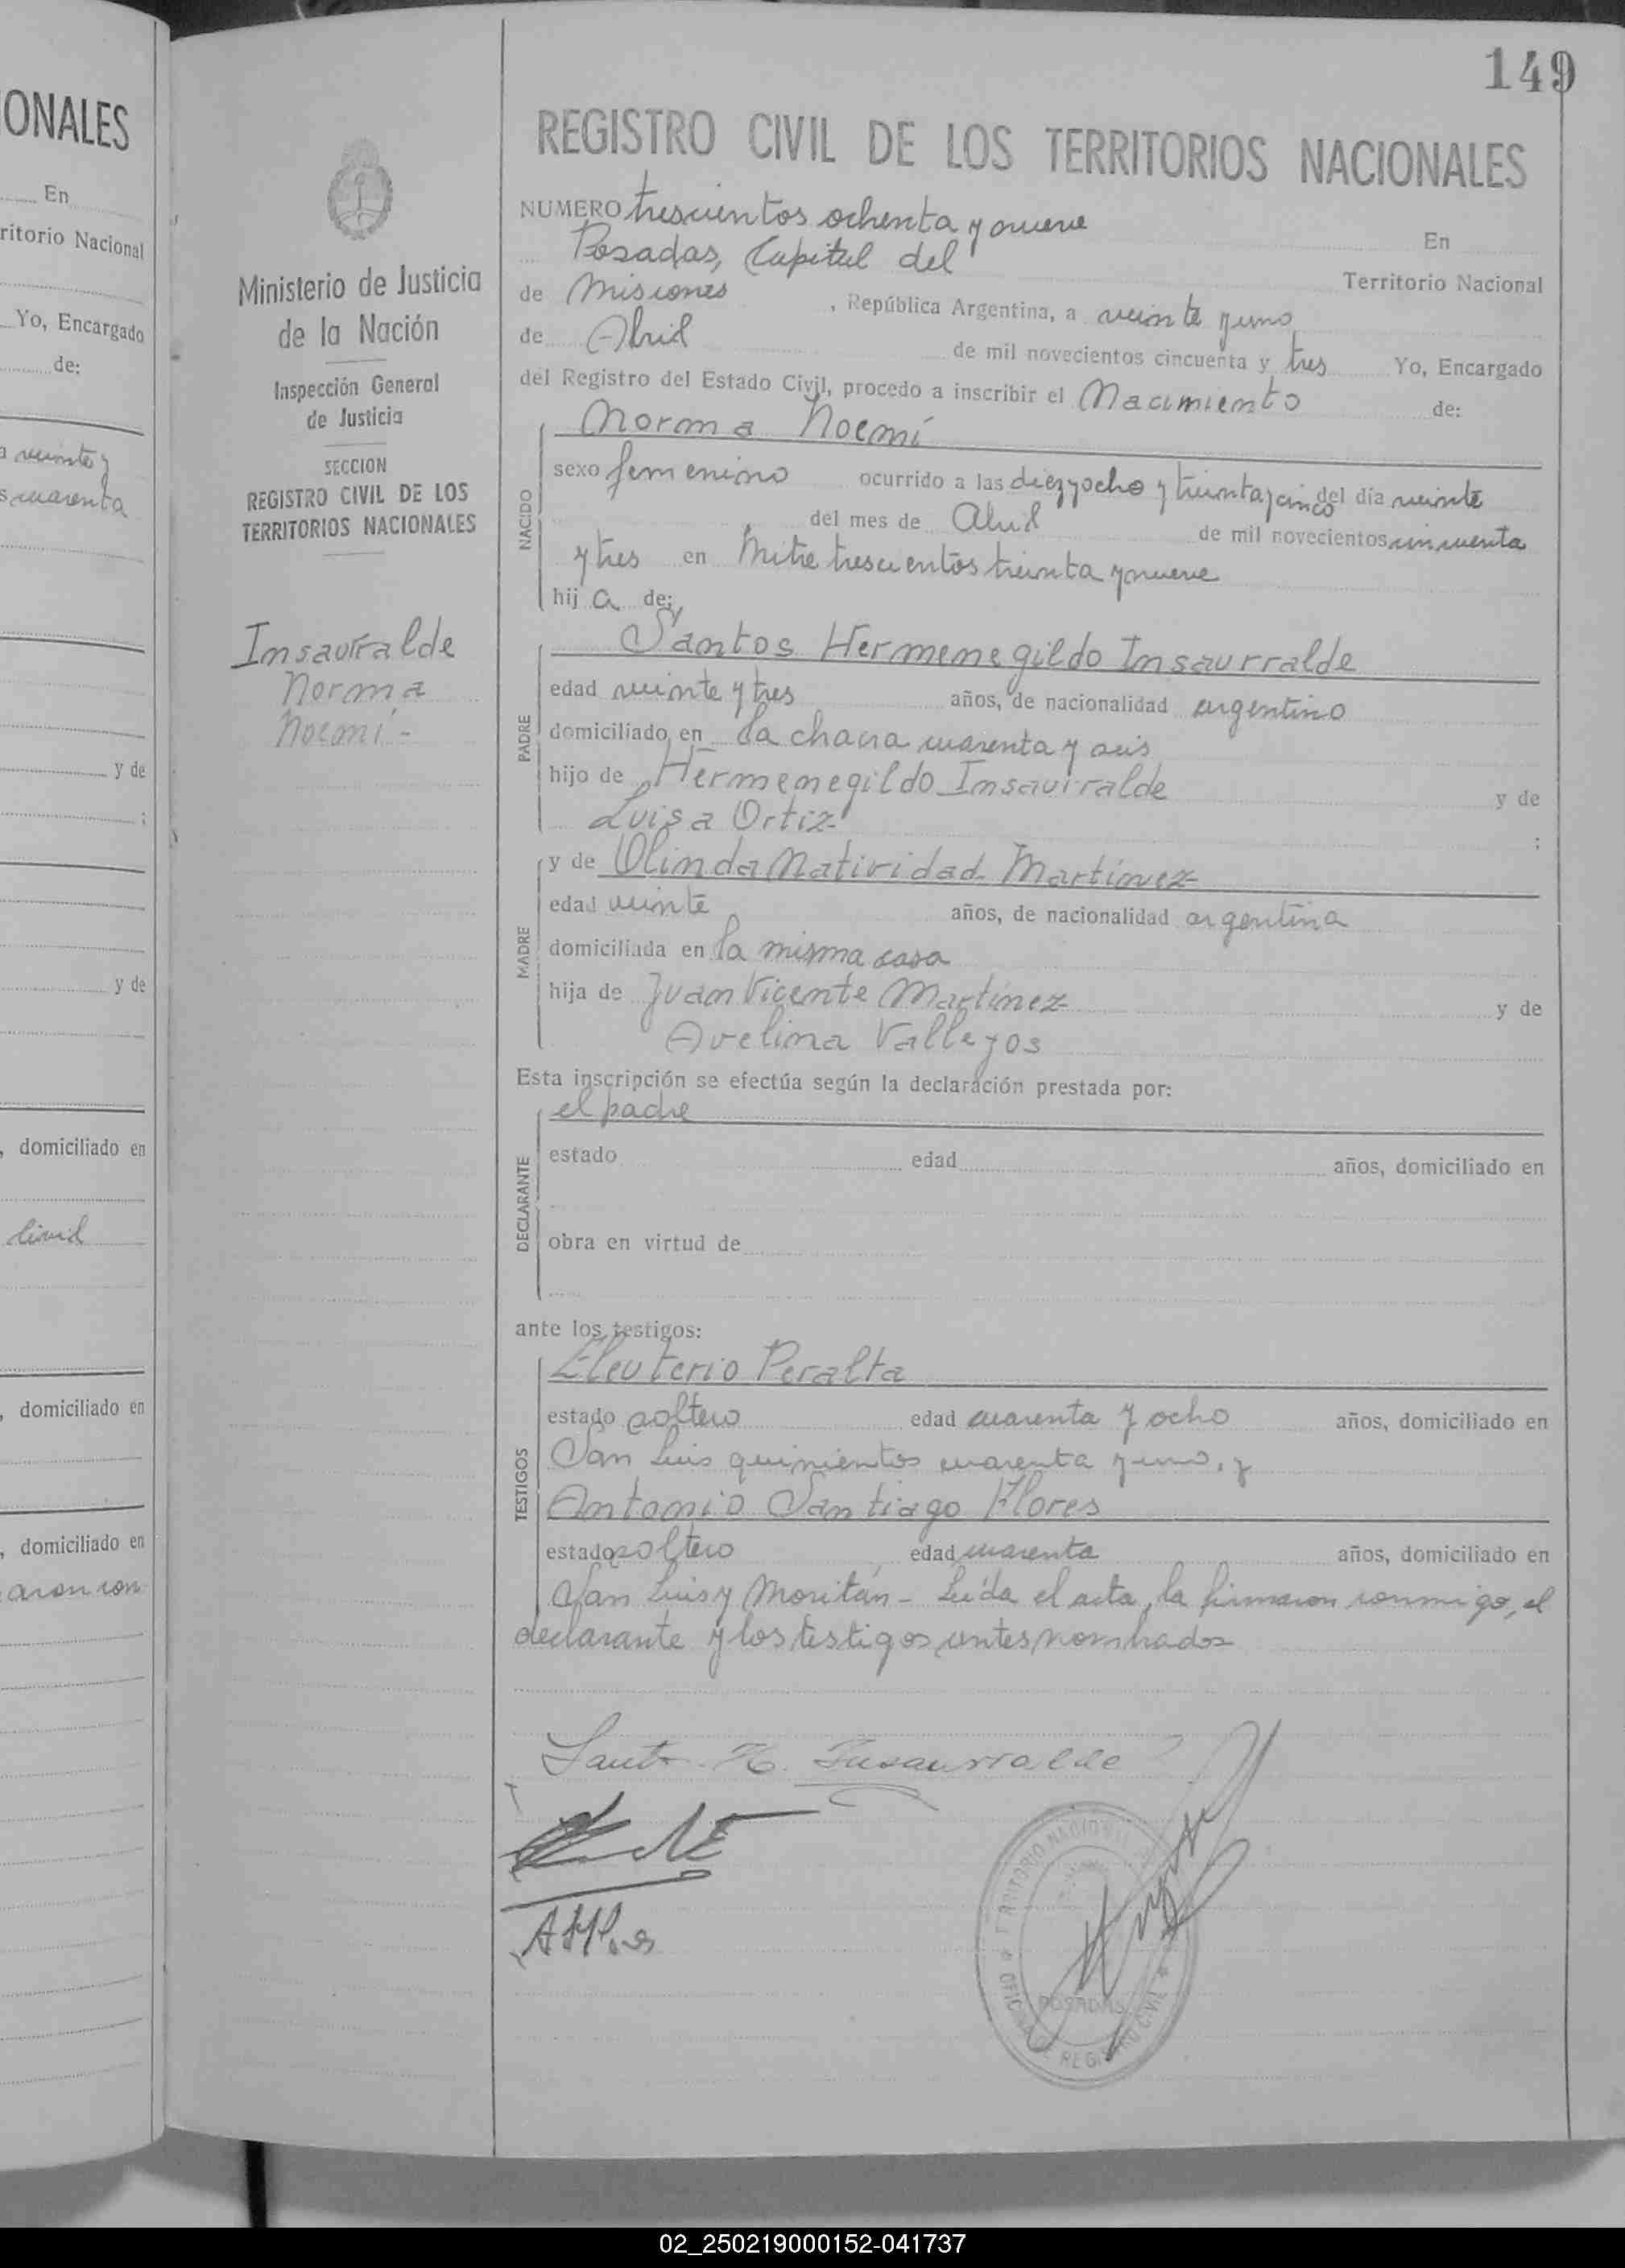 149
ONALES
En
ritorio Nacional
Yo, Encargado
de:
a veinte y
s cuarenta
y de
;
y de
, domiciliado en
Civil
, domiciliado en
, domiciliado en
aron con
Ministerio de Justicia
de la Nación
Inspección General
de Justicia
SECCION
REGISTRO CIVIL DE LOS
TERRITORIOS NACIONALES
Insaurralde
Norma
Noemí -
REGISTRO CIVIL DE LOS TERRITORIOS NACIONALES
NUMERO trescientos ochenta y nueve En
Posadas, Capital del Territorio Nacional
de Misiones , República Argentina, a veinte y uno
de Abril de mil novecientos cincuenta y tres Yo, Encargado
del Registro del Estado Civil, procedo a inscribir el Nacimiento de:
Norma Noemí
NACIDO
sexo femenino ocurrido a las diez y ocho y treinta y cinco del día veinte
del mes de Abril de mil novecientos cincuenta
y tres en Mitre trescientos treinta y nueve
hij a de:
Santos Hermenegildo Insaurralde
PADRE
edad veinte y tres años, de nacionalidad argentino
domiciliado en la chacra cuarenta y seis
hijo de Hermenegildo Insaurralde y de
Luisa Ortiz ;
MADRE
y de Olinda Natividad Martínez
edad veinte años, de nacionalidad argentina
domiciliada en la misma casa
hija de Juan Vicente Martínez y de
Avelina Vallejos
Esta inscripción se efectúa según la declaración prestada por:
DECLARANTE
el padre
estado edad años, domiciliado en
obra en virtud de
ante los testigos:
TESTIGOS
Eleuterio Peralta
estado soltero edad cuarenta y ocho años, domiciliado en
San Luis quinientos cuarenta y uno, y
Antonio Santiago Flores
estado soltero edad cuarenta años, domiciliado en
San Luis y Moritán - Leída el acta, la firmaron conmigo, el
declarante y los testigos antes nombrados
Santos H. Insaurralde
TERRITORIO NACIONAL
POSADAS
OFICINA DE REGISTRO CIVIL
02_250219000152-041737